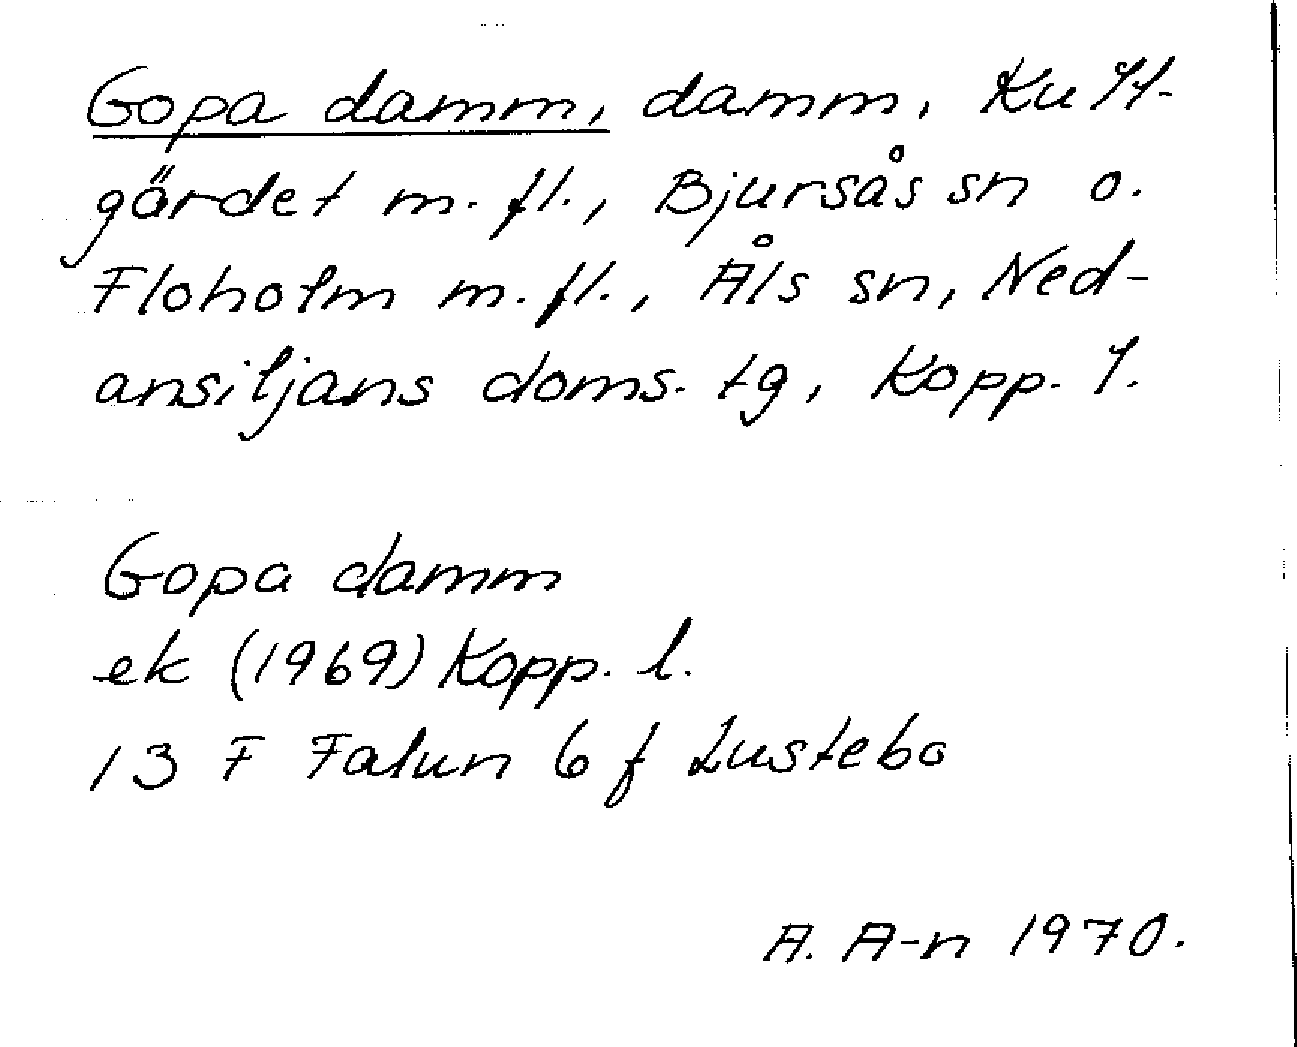 Gopa damm, damm, Kull-
gärdet m. fl., Bjursås sn o.
Floholm m. fl., Åls sn, Ned-
ansiljans doms. tg, Kopp. l.
Gopa damm
ek (1969) Kopp. l.
13 F Falun 6 f Lustebo
A. A-n 1970.